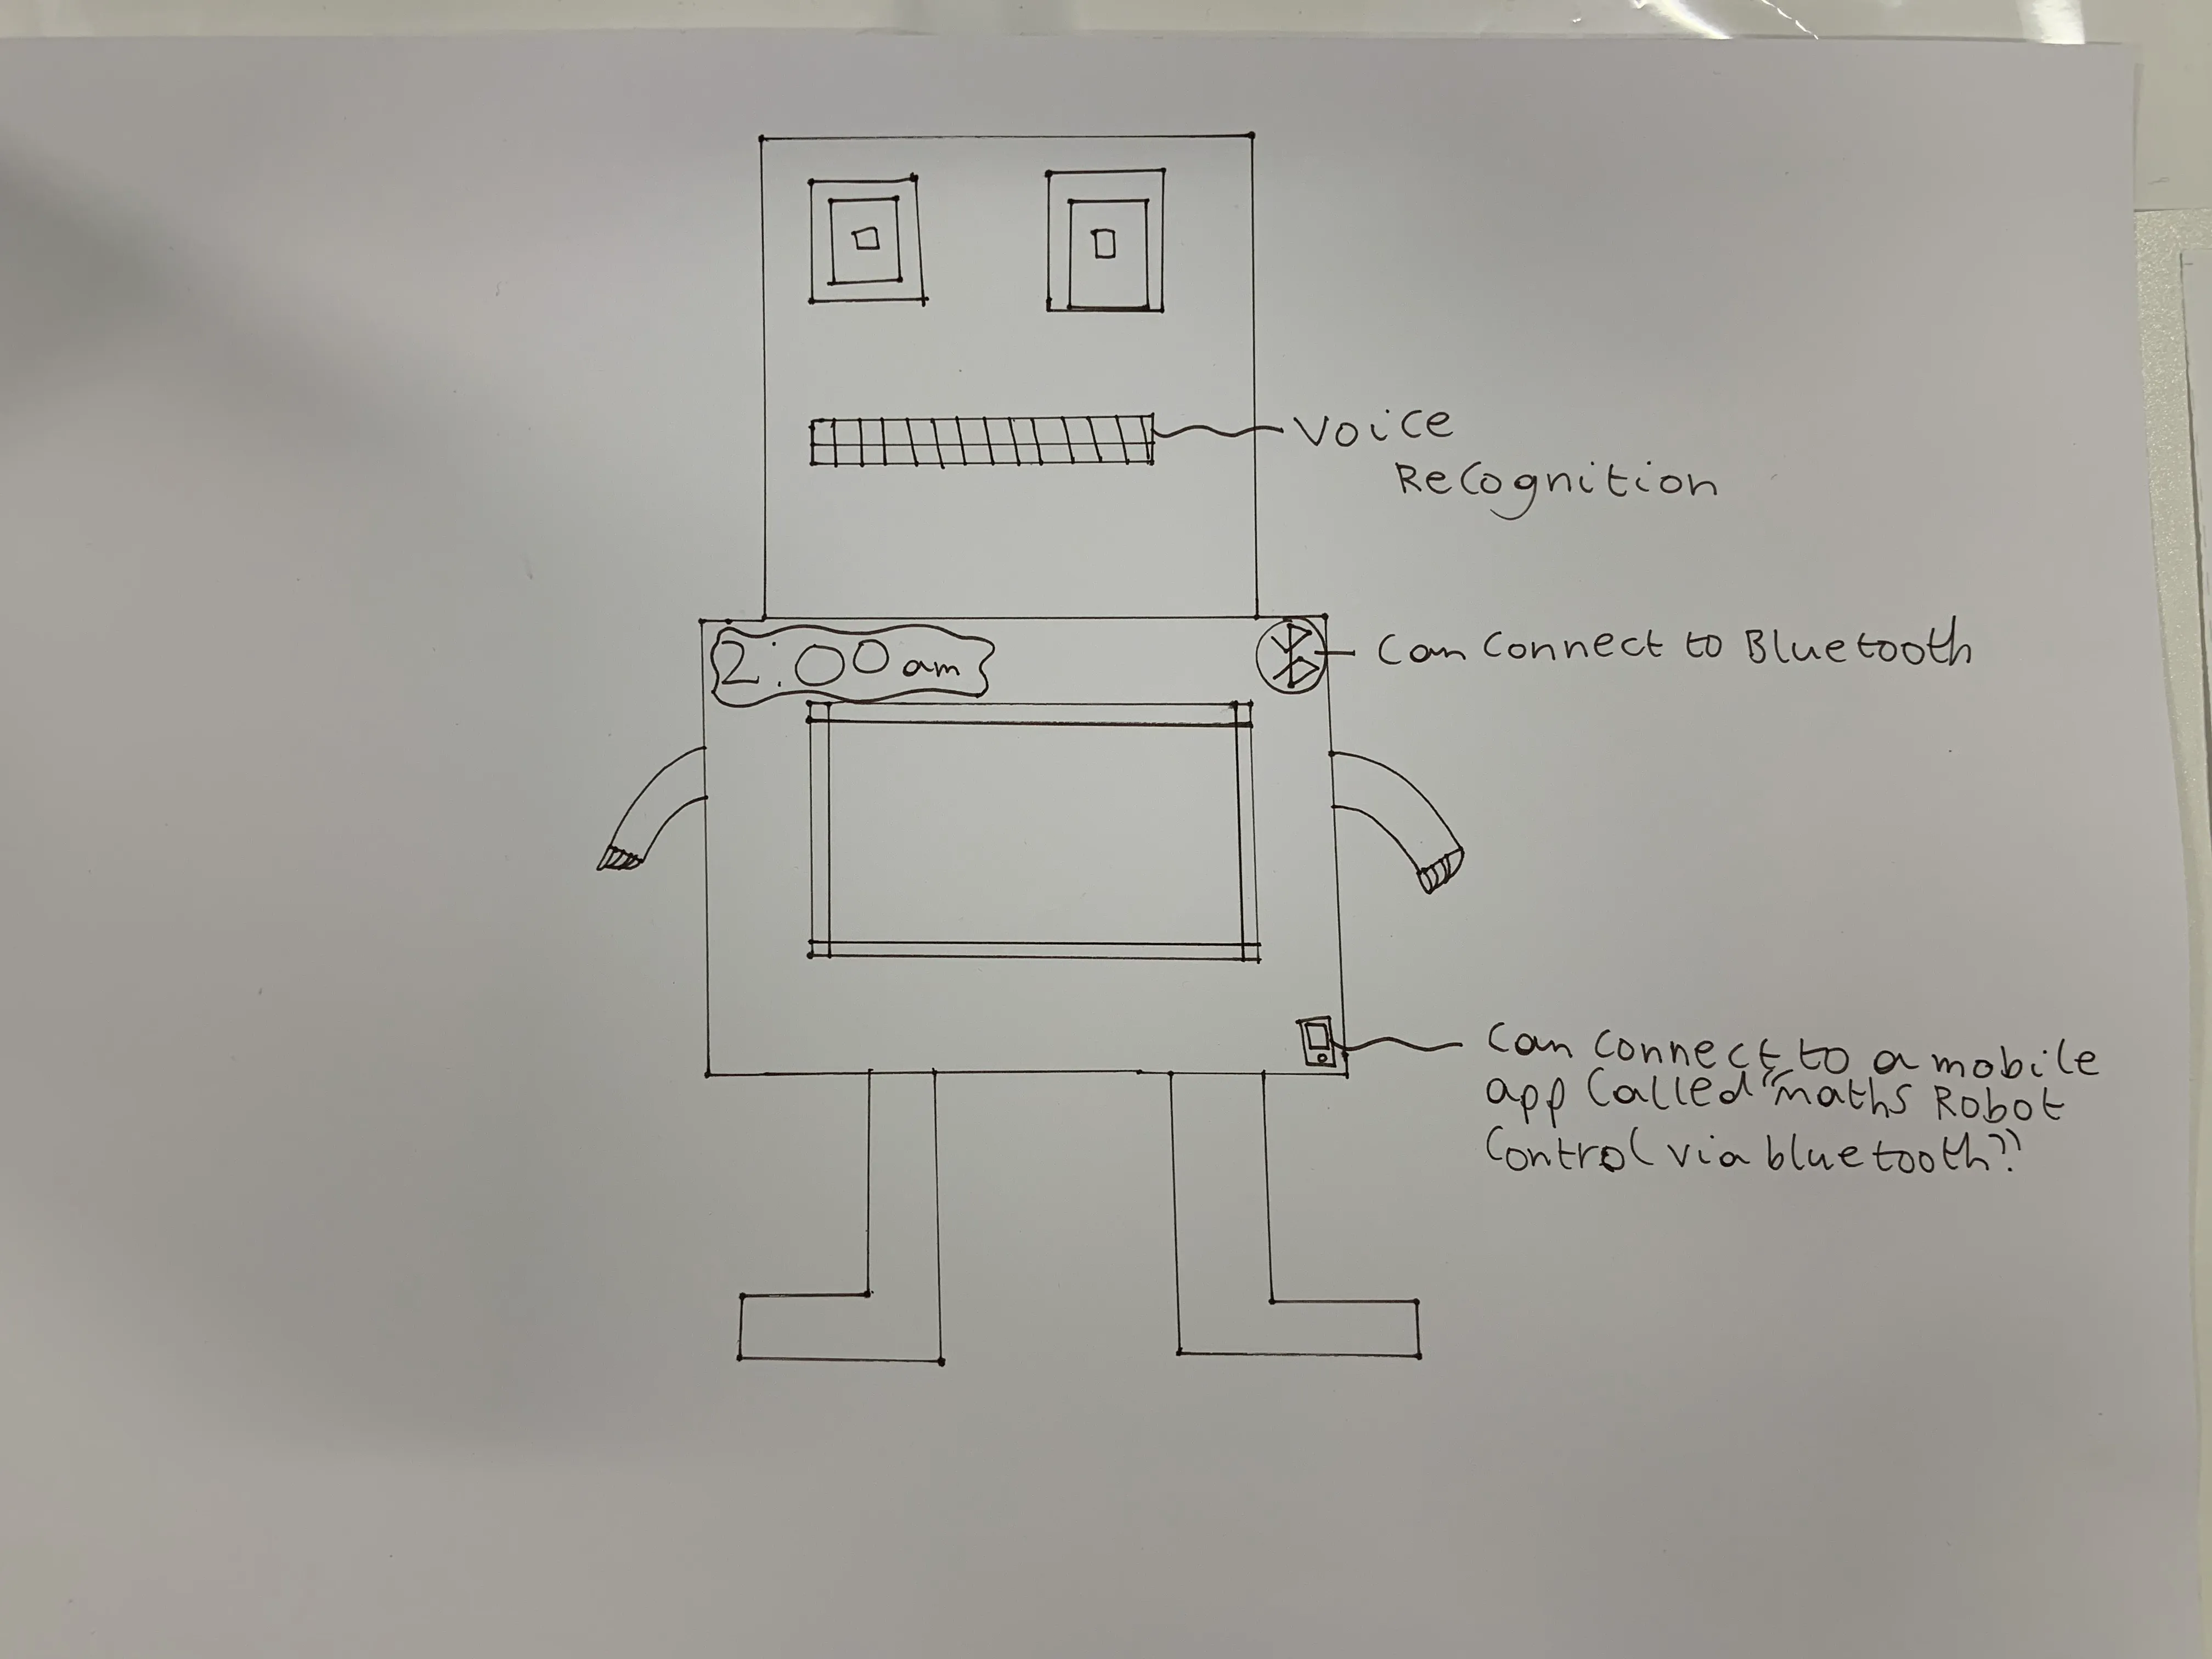 Voice
Recognition
2:00am
Can Connect to Bluetooth
Can connect to a mobile
app Called "maths Robot
Control via bluetooth"